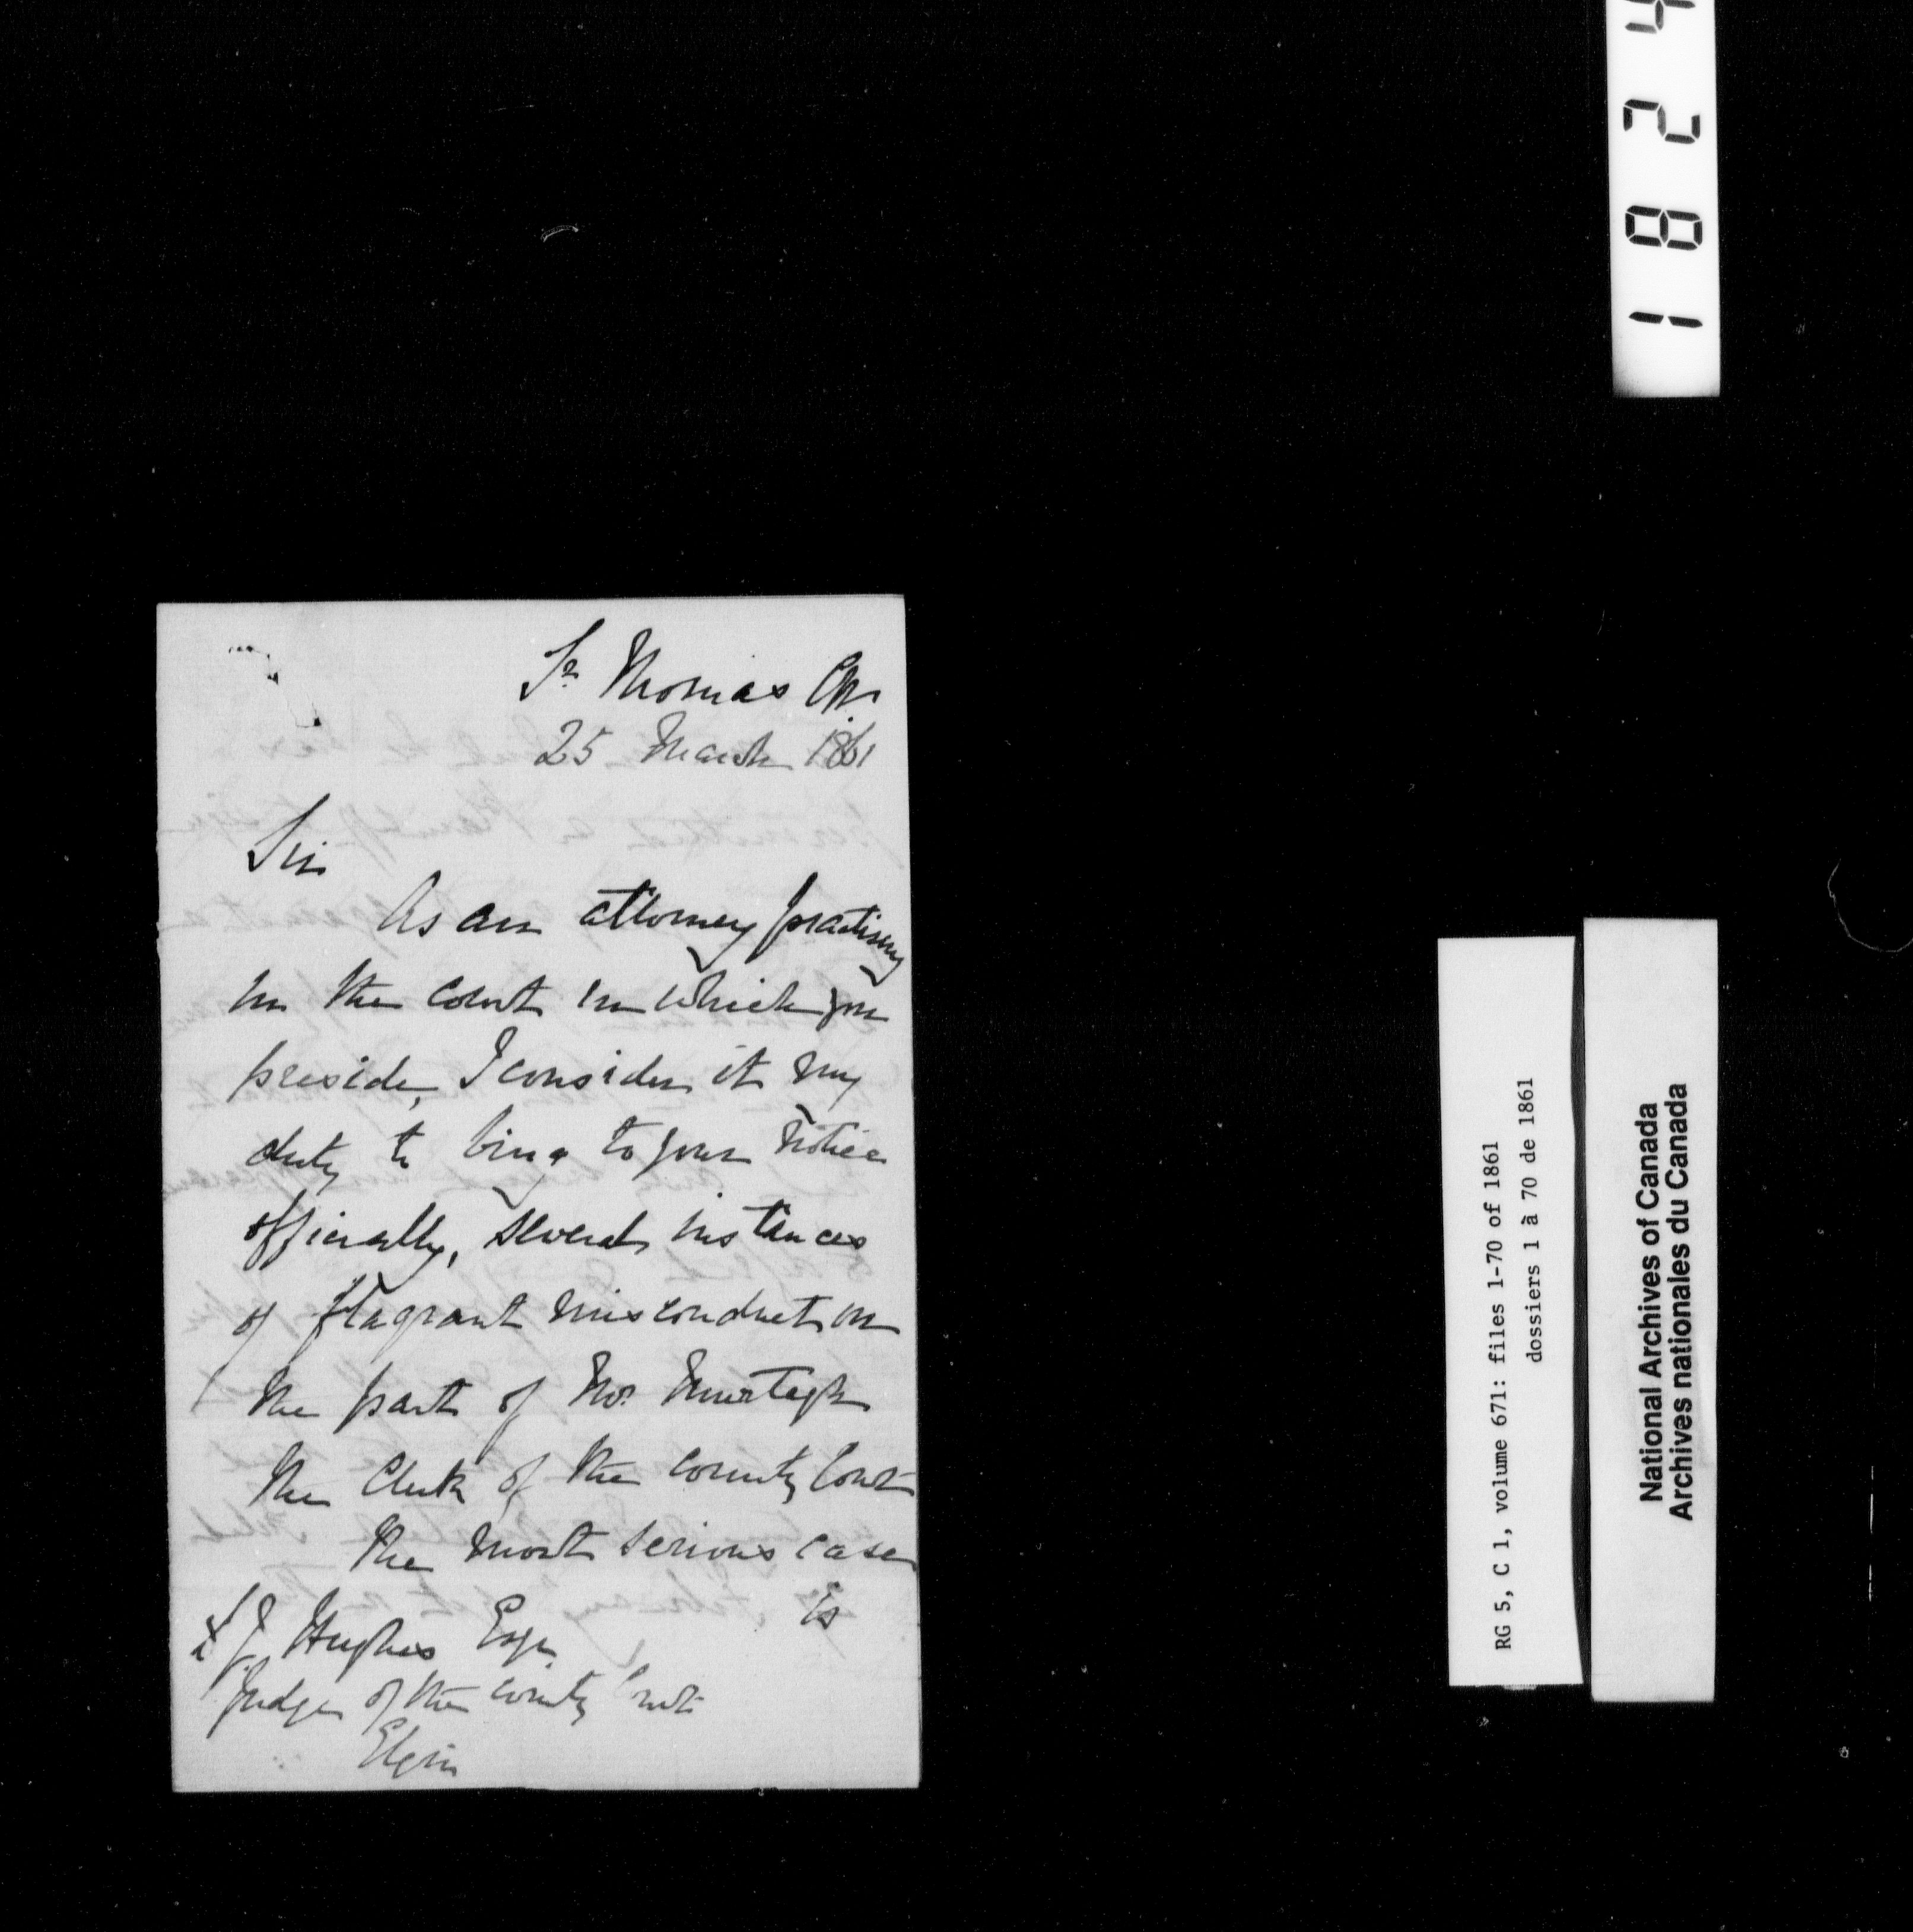 St Thomas CW
25 March 1861
Sir
As an attorney practising
in the court in which you
preside, I consider it my
duty to bring to your notice
officially, several instances
of flagrant misconduct on
the part of Mr. Murtagh
the Clerk of the County Court
The most serious case
is
J. Hughes Esqr
Judge of the County Court
Elgin
1 8 2 4
RG 5, C 1, volume 671: files 1-70 of 1861
dossiers 1 à 70 de 1861
National Archives of Canada
Archives nationales du Canada